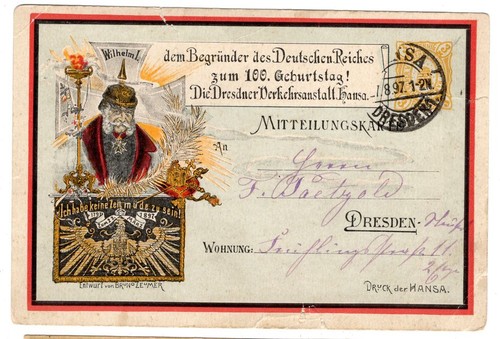 Wilhelm I.
dem Begründer des Deutschen Reiches
zum 100. Geburtstag!
Die Dresdner Verkehrsanstalt Hansa.
8.97. 1-2N.
DRESDEN
MITTEILUNGSKA
An
Herrn
F. Paetzold
DRESDEN-
WOHNUNG: Frühlingstrasse 11
Ich habe keine Zeit müde zu sein!
1797 1897
Entwurf von BRUNO ZEUMER
DRUCK der HANSA.